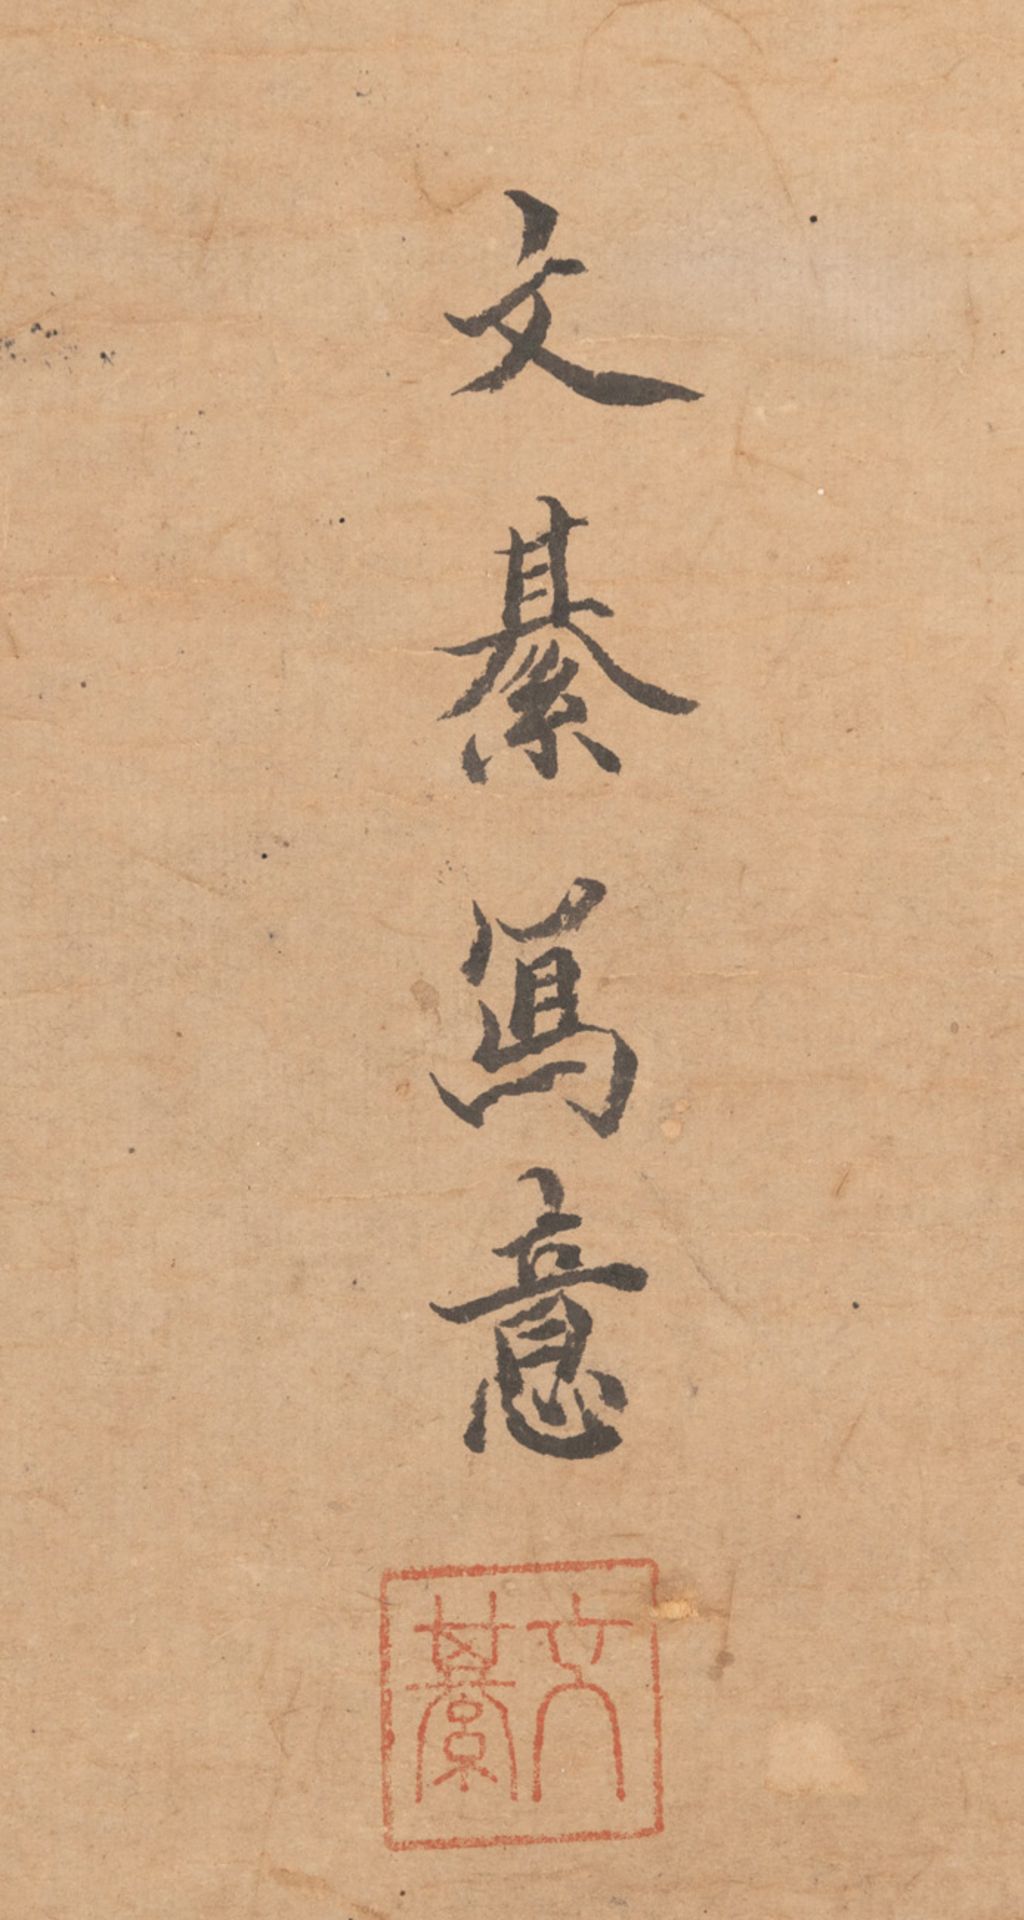 文綦寫意
文綦